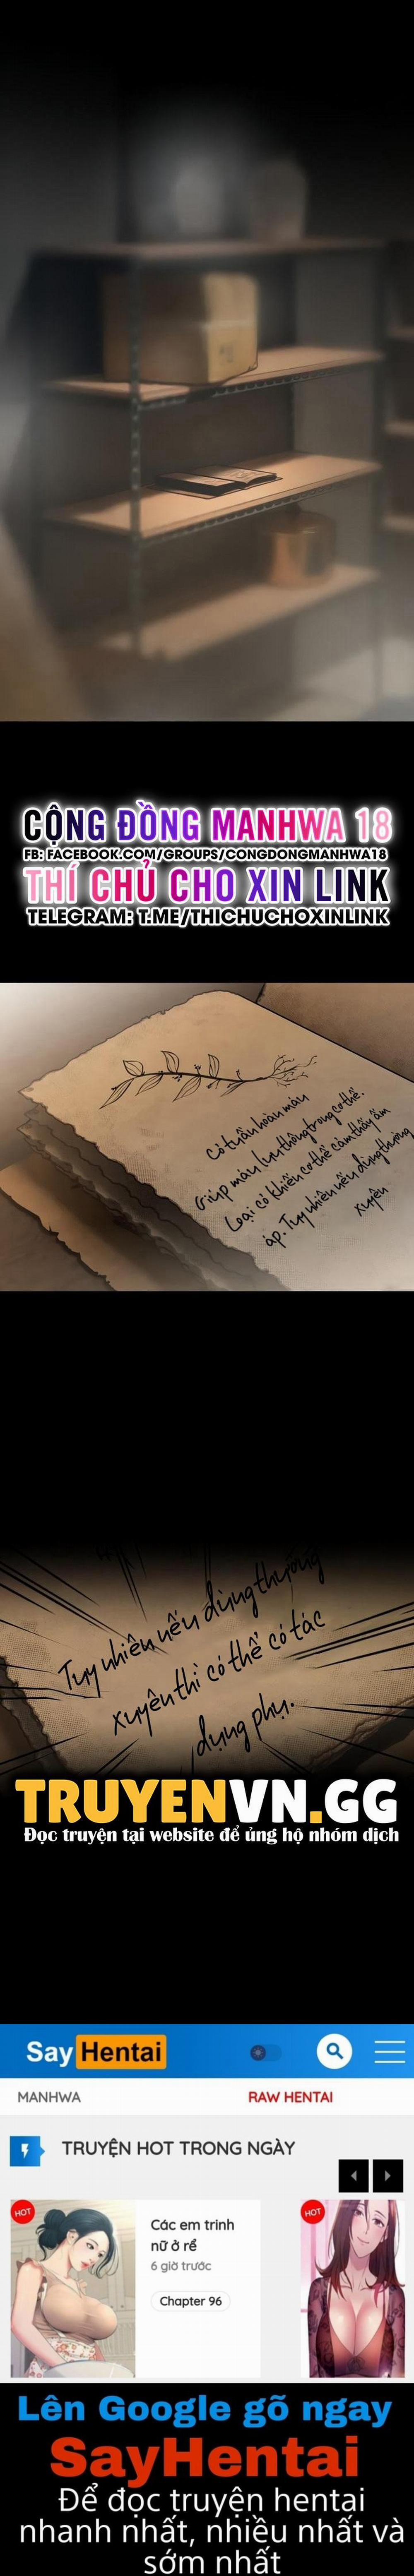 CỘNG ĐỒNG MANHWA 18
FB: FACEBOOK.COM/GROUPS/CONGDONGMANHWA18
THÍ CHỦ CHO XIN LINK
TELEGRAM: T.ME/THICHUCHOXINLINK
Cỏ tuần hoàn máu
Giúp máu lưu thông trong cơ thể.
Loại cỏ khiến cơ thể cảm thấy ấm
áp. Tuy nhiên nếu dùng thường
xuyên
Tuy nhiên nếu dùng thường
xuyên thì có thể có tác
dụng phụ.
TRUYENVN.GG
Đọc truyện tại website để ủng hộ nhóm dịch
SayHentai
MANHWA
RAW HENTAI
TRUYỆN HOT TRONG NGÀY
HOT
Các em trinh
nữ ở rể
6 giờ trước
Chapter 96
HOT
Lên Google gõ ngay
SayHentai
Để đọc truyện hentai
nhanh nhất, nhiều nhất và
sớm nhất